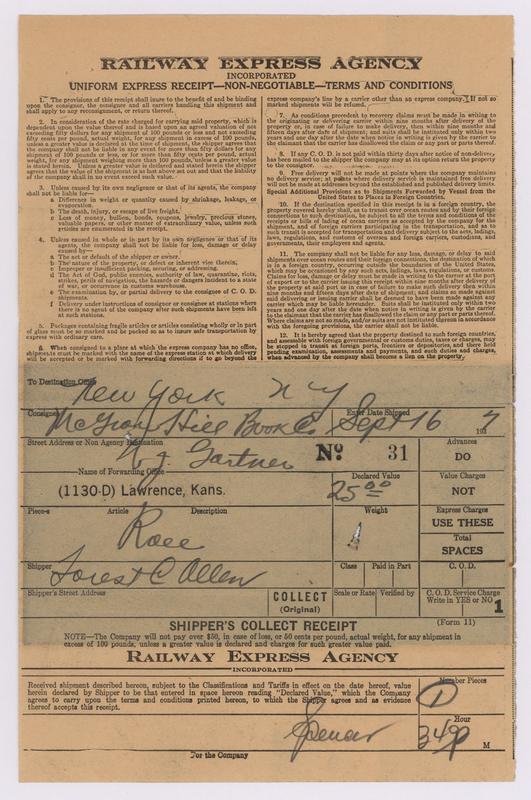 RAILWAY EXPRESS AGENCY
INCORPORATED
UNIFORM EXPRESS RECEIPT—NON-NEGOTIABLE—TERMS AND CONDITIONS
1. The provisions of this receipt shall inure to the benefit of and be binding
upon the consignor, the consignee and all carriers handling this shipment and
shall apply to any reconsignment, or return thereof.
2. In consideration of the rate charged for carrying said property, which is
dependent upon the value thereof and is based upon an agreed valuation of not
exceeding fifty dollars for any shipment of 100 pounds or less and not exceeding
fifty cents per pound, actual weight, for any shipment in excess of 100 pounds,
unless a greater value is declared at the time of shipment, the shipper agrees that
the company shall not be liable in any event for more than fifty dollars for any
shipment of 100 pounds or less, or for more than fifty cents per pound, actual
weight, for any shipment weighing more than 100 pounds, unless a greater value is
stated herein. Unless a greater value is declared and stated herein the shipper
agrees that the value of the shipment is as last above set out and that the liability
of the company shall in no event exceed such value.
3. Unless caused by its own negligence or that of its agents, the company
shall not be liable for—
a Difference in weight or quantity caused by shrinkage, leakage, or
evaporation.
b The death, injury, or escape of live freight.
c Loss of money, bullion, bonds, coupons, jewelry, precious stones,
valuable papers, or other matter of extraordinary value, unless such
articles are enumerated in the receipt.
4. Unless caused in whole or in part by its own negligence or that of its
agents, the company shall not be liable for loss, damage or delay
caused by—
a The act or default of the shipper or owner.
b The nature of the property, or defect or inherent vice therein.
c Improper or insufficient packing, securing, or addressing.
d The Act of God, public enemies, authority of law, quarantine, riots,
strikes, perils of navigation, the hazards or dangers incident to a state
of war, or occurrence in customs warehouse.
e The examination by, or partial delivery to the consignee of C. O. D.
shipments.
f Delivery under instructions of consignor or consignee at stations where
there is no agent of the company after such shipments have been left
at such stations.
5. Packages containing fragile articles or articles consisting wholly or in part
of glass must be so marked and be packed so as to insure safe transportation by
express with ordinary care.
6. When consigned to a place at which the express company has no office,
shipments must be marked with the name of the express station at which delivery
will be accepted or be marked with forwarding directions if to go beyond the
express company's line by a carrier other than an express company. If not so
marked shipments will be refused.
7. As conditions precedent to recovery claims must be made in writing to
the originating or delivering carrier within nine months after delivery of the
property or, in case of failure to make delivery, then within nine months and
fifteen days after date of shipment; and suits shall be instituted only within two
years and one day after the date when notice in writing is given by the carrier to
the claimant that the carrier has disallowed the claim or any part or parts thereof.
8. If any C. O. D. is not paid within thirty days after notice of non-delivery
has been mailed to the shipper the company may at its option return the property
to the consignor.
9. Free delivery will not be made at points where the company maintains
no delivery service; at points where delivery service is maintained free delivery
will not be made at addresses beyond the established and published delivery limits.
Special Additional Provisions as to Shipments Forwarded by Vessel from the
United States to Places in Foreign Countries.
10. If the destination specified in this receipt is in a foreign country, the
property covered hereby shall, as to transit over ocean routes and by their foreign
connections to such destination, be subject to all the terms and conditions of the
receipts or bills of lading of ocean carriers as accepted by the company for the
shipment, and of foreign carriers participating in the transportation, and as to
such transit is accepted for transportation and delivery subject to the acts, ladings,
laws, regulations, and customs of oversea and foreign carriers, custodians, and
governments, their employees and agents.
11. The company shall not be liable for any loss, damage, or delay to said
shipments over ocean routes and their foreign connections, the destination of which
is in a foreign country, occurring outside the boundaries of the United States,
which may be occasioned by any such acts, ladings, laws, regulations, or customs.
Claims for loss, damage or delay must be made in writing to the carrier at the port
of export or to the carrier issuing this receipt within nine months after delivery of
the property at said port or in case of failure to make such delivery then within
nine months and fifteen days after date of shipment; and claims so made against
said delivering or issuing carrier shall be deemed to have been made against any
carrier which may be liable hereunder. Suits shall be instituted only within two
years and one day after the date when notice in writing is given by the carrier to
the claimant that the carrier has disallowed the claim or any part or parts thereof.
Where claims are not filed and/or suits are not instituted thereon in accordance
with the foregoing provisions, the carrier shall not be liable.
12. It is hereby agreed that the property destined to such foreign countries,
and assessable with foreign governmental or customs duties, taxes or charges, may
be stopped in transit at foreign ports, frontiers or depositories, and there held
pending examination, assessments and payments, and such duties and charges,
when advanced by the company shall become a lien on the property.
To Destination Office
New York N Y
Consignee
McGraw Hill Book Co.
Enter Date Shipped
Sept 16 1937
Street Address or Non Agency Destination
N. J. Gartner
No. 31
Advances
DO
Name of Forwarding Office
(1130-D) Lawrence, Kans.
Declared Value
25.00
Value Charges
NOT
Pieces Article Description
Weight
1
Express Charges
USE THESE
Total
SPACES
Shipper
Forest C Allen
Class Paid in Part
C. O. D.
Shipper's Street Address
COLLECT
(Original)
Scale or Rate Verified by
C. O. D. Service Charge
Write in YES or NO
1
SHIPPER'S COLLECT RECEIPT
(Form 11)
NOTE—The Company will not pay over $50, in case of loss, or 50 cents per pound, actual weight, for any shipment in
excess of 100 pounds, unless a greater value is declared and charges for such greater value paid.
RAILWAY EXPRESS AGENCY
INCORPORATED
Received shipment described hereon, subject to the Classifications and Tariffs in effect on the date hereof, value
herein declared by Shipper to be that entered in space hereon reading "Declared Value," which the Company
agrees to carry upon the terms and conditions printed hereon, to which the Shipper agrees and as evidence
thereof accepts this receipt.
Number Pieces
1
Spencer
Hour
M
For the Company